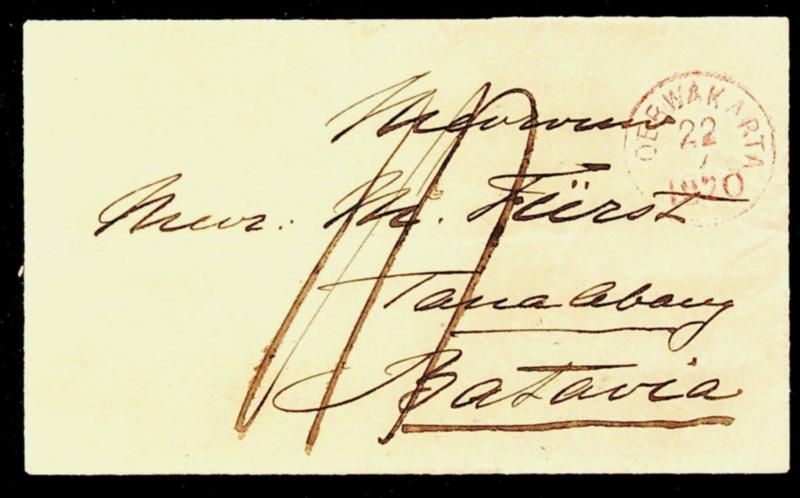 Mevrouw
Mevr. M. Fürst
Tanaabang
Batavia
OERWAKARTA
22
1870